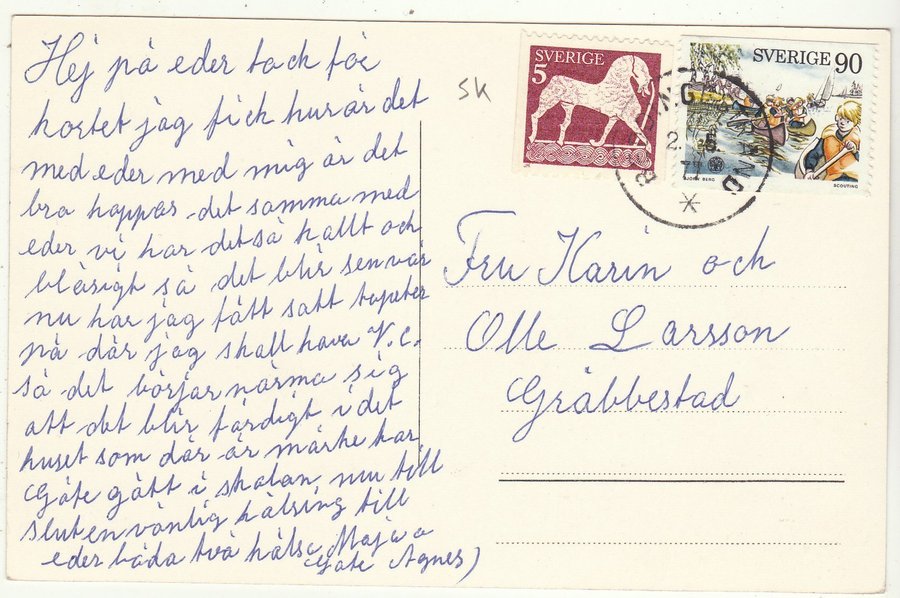 Hej på eder tack för
kortet jag fick hur är det
med eder med mig är det
bra hoppas det samma med
eder vi har det så kallt och
blåsigt så det blir sen vår
nu har jag fått satt tapeter
på där jag skall hava V.C.
så det börjar närma sig
att det blir färdigt i det
huset som där är märke har
Göte gått i skolan nu till
slut en vänlig hälsing till
eder båda två hälsa Maja o
Göte Agnes)
SK
SVERIGE
5
SVERIGE 90
BJÖRN BERG
SCOUTING
Fru Karin och
Olle Larsson
Gräbbestad